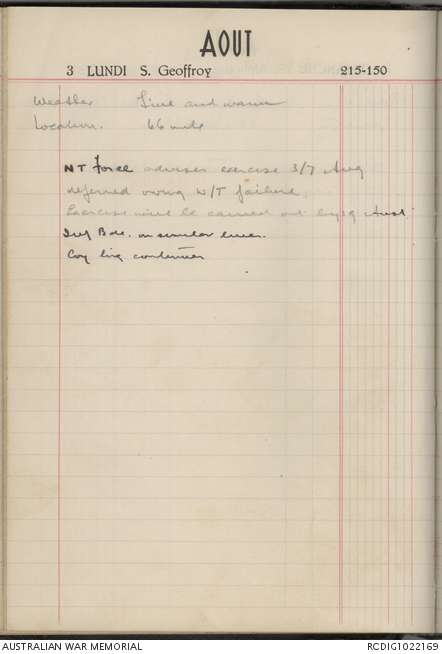 AOUT
3 LUNDI S. Geoffroy 215-150
Weather Fine and warm
Location. 66 mile
NT Force advises exercise 3/7 Aug
deferred owing W/T failure
Exercise will be carried out by 19 Aust
Inf Bde. on similar lines.
Coy trg continues
AUSTRALIAN WAR MEMORIAL RCDIG1022169